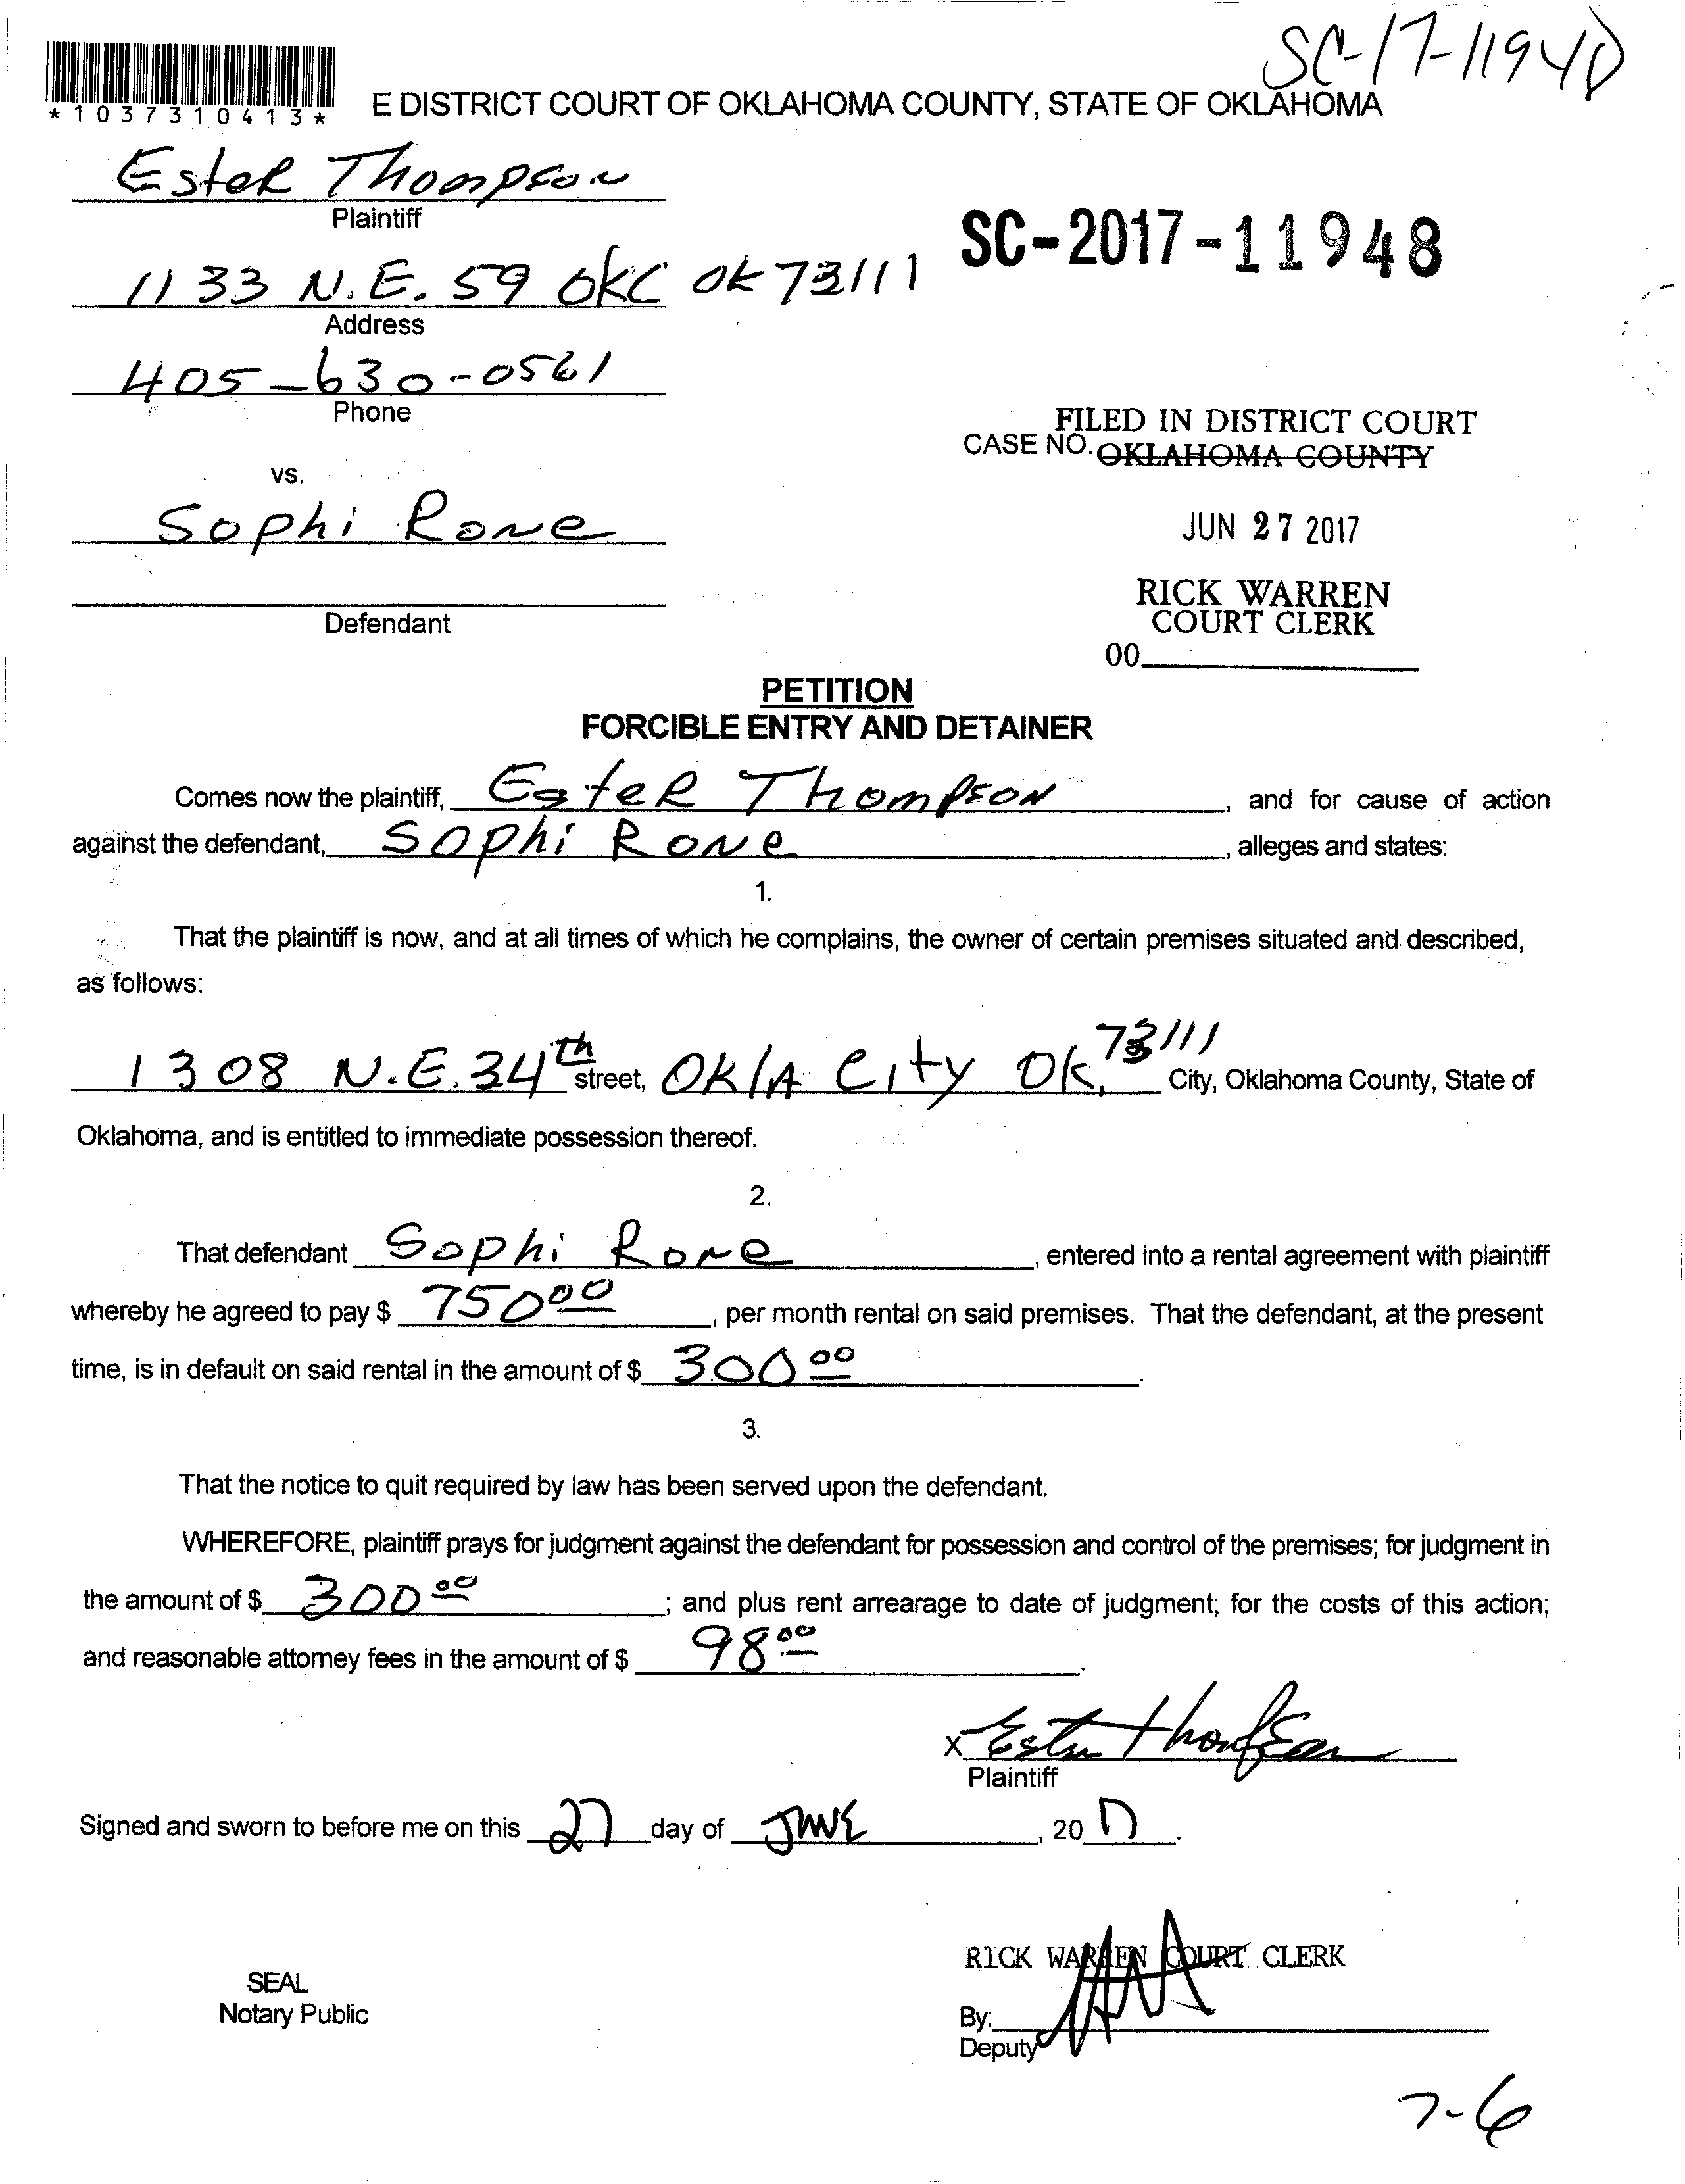 SC-17-11948
*1037310413*
E DISTRICT COURT OF OKLAHOMA COUNTY, STATE OF OKLAHOMA
Ester Thompson
Plaintiff
SC-2017-11948
1133 N.E. 59 OKC OK 73111
Address
405-630-0561
Phone
FILED IN DISTRICT COURT
CASE NO. OKLAHOMA COUNTY
vs.
Sophi Rone
JUN 27 2017
RICK WARREN
COURT CLERK
Defendant
00
PETITION
FORCIBLE ENTRY AND DETAINER
Comes now the plaintiff, Ester Thompson, and for cause of action
against the defendant, Sophi Rone, alleges and states:
1.
That the plaintiff is now, and at all times of which he complains, the owner of certain premises situated and described,
as follows:
1308 N.E. 34th street, OKlA City Ok, 73111 City, Oklahoma County, State of
Oklahoma, and is entitled to immediate possession thereof.
2.
That defendant Sophi Rone, entered into a rental agreement with plaintiff
whereby he agreed to pay $ 750 00, per month rental on said premises. That the defendant, at the present
time, is in default on said rental in the amount of $ 300 00.
3.
That the notice to quit required by law has been served upon the defendant.
WHEREFORE, plaintiff prays for judgment against the defendant for possession and control of the premises; for judgment in
the amount of $ 300 00; and plus rent arrearage to date of judgment; for the costs of this action;
and reasonable attorney fees in the amount of $ 98 00.
X Ester Thompson
Plaintiff
Signed and sworn to before me on this 27 day of JUNE, 2017.
RICK WARREN COURT CLERK
SEAL
Notary Public
By:
Deputy
7-6